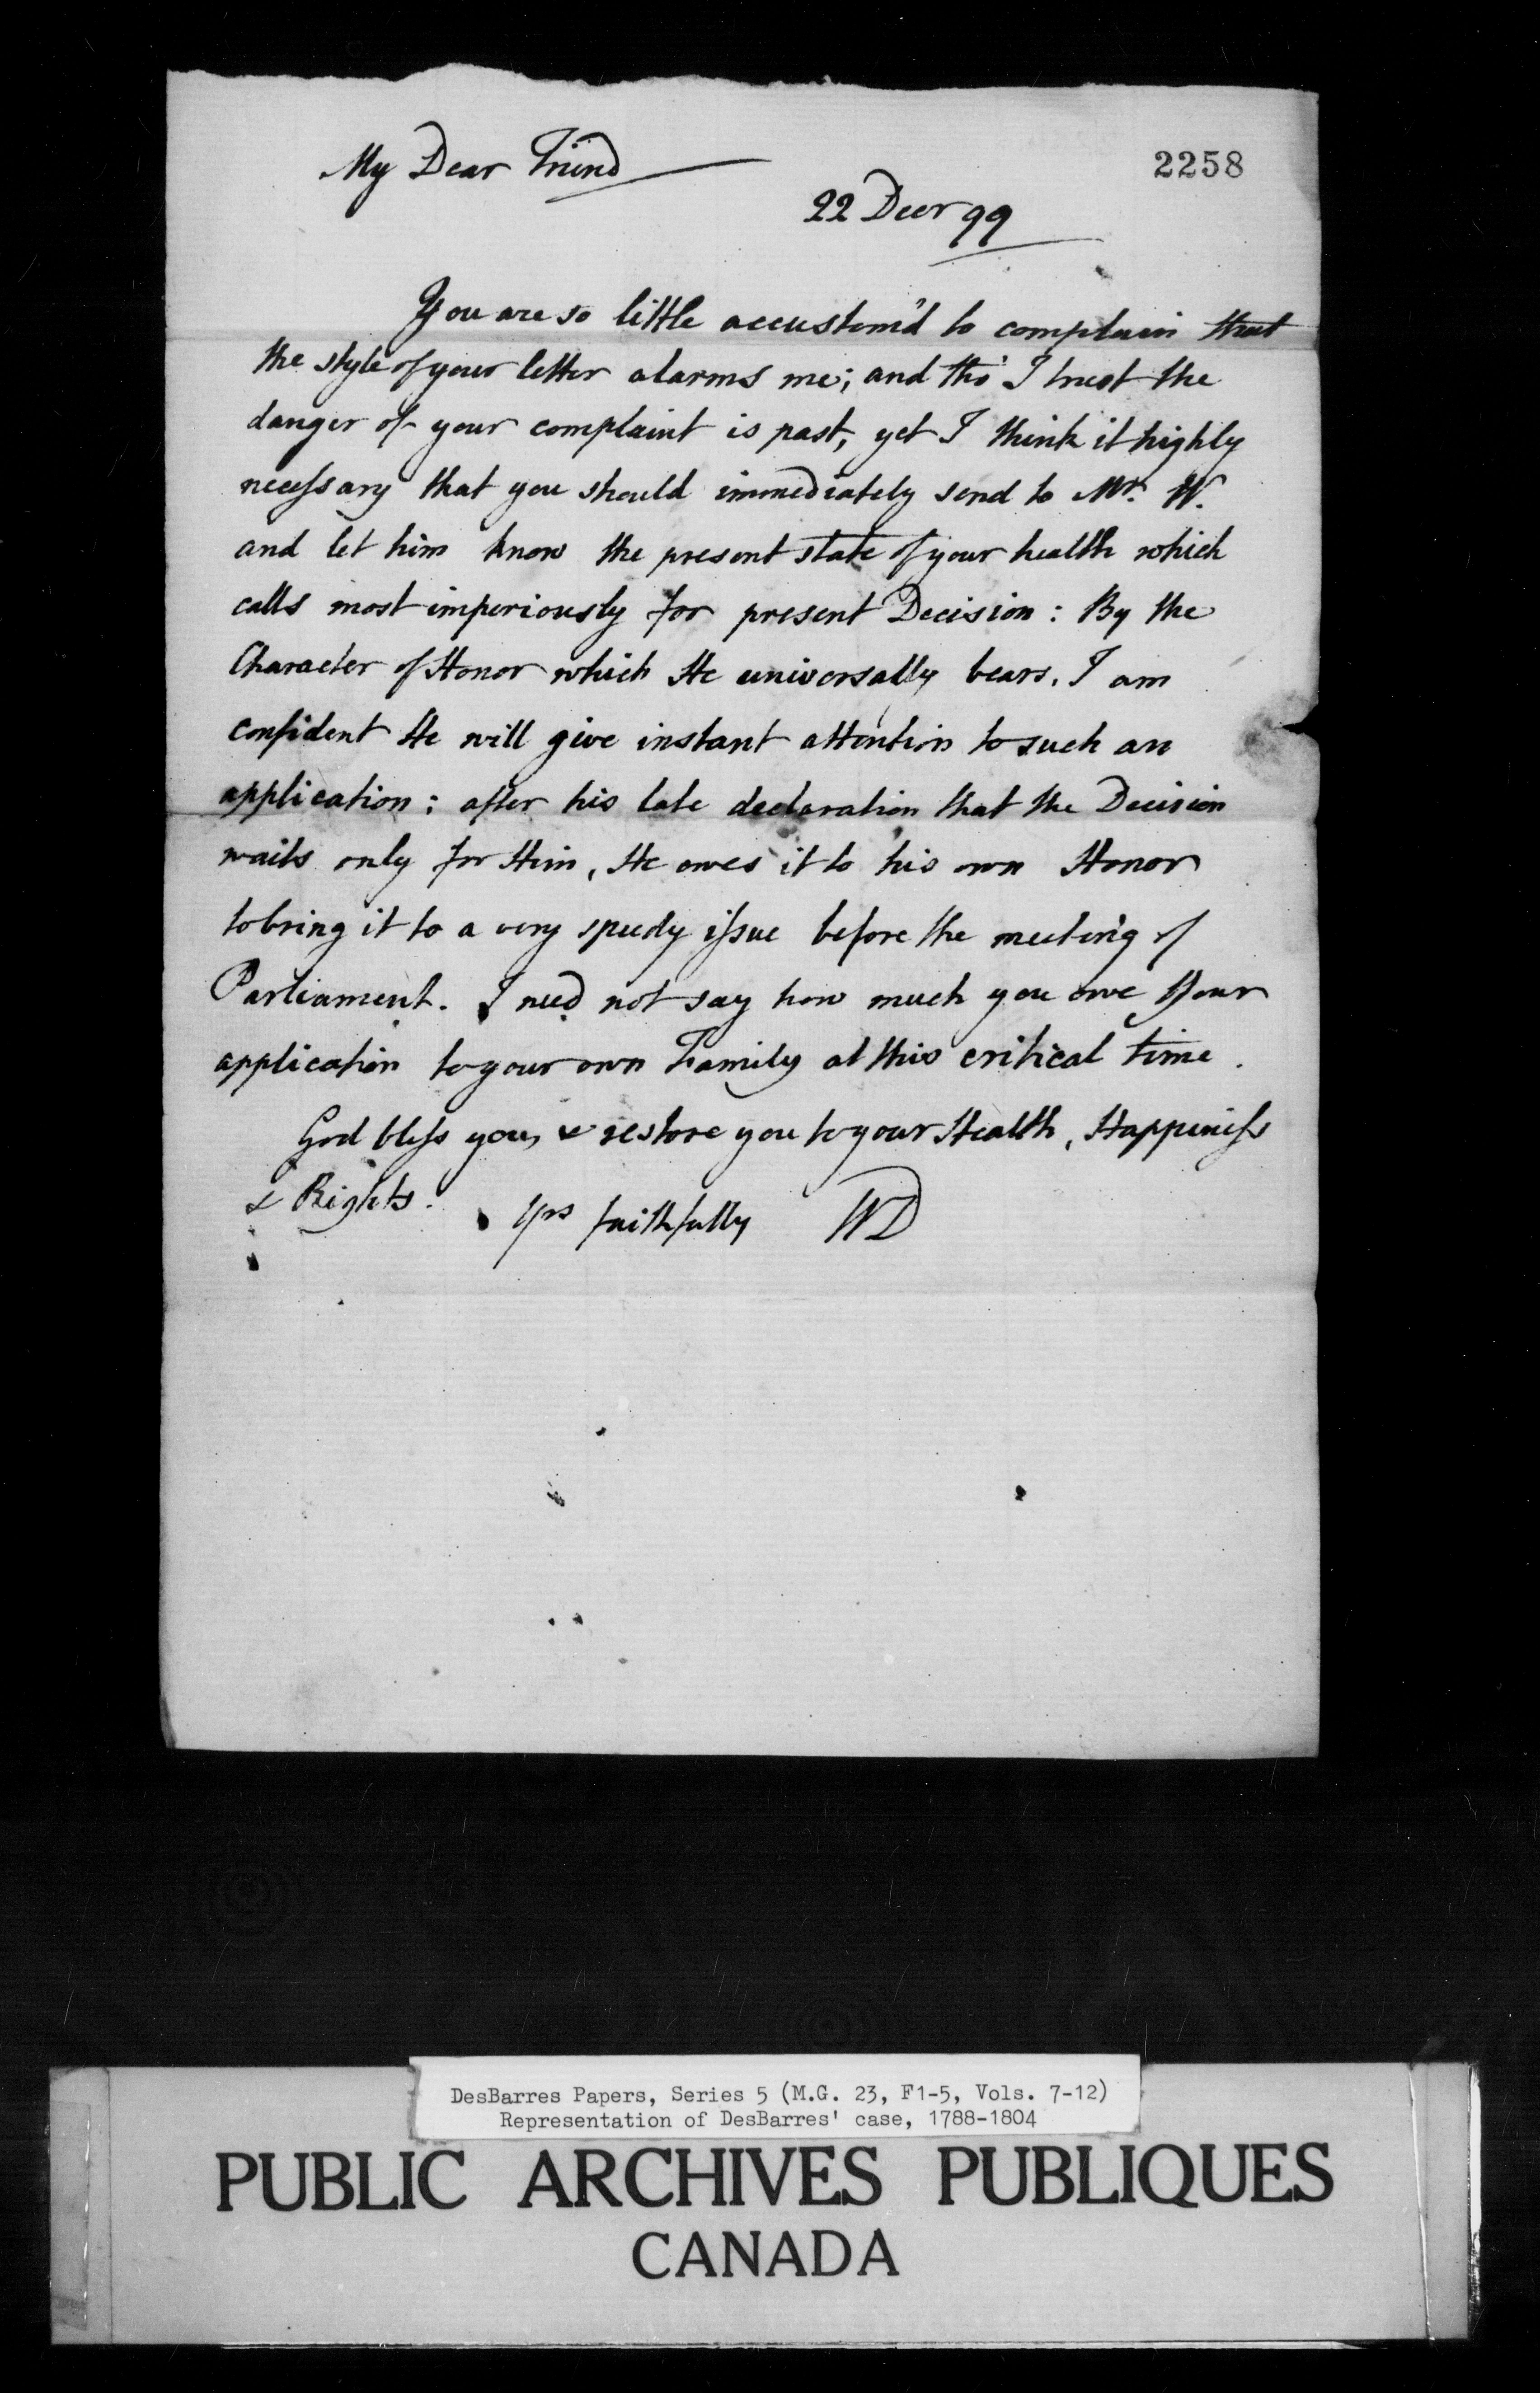 My Dear Friend
2258
22 Decr 99
You are so little accustom'd to complain that
the style of your letter alarms me; and tho' I trust the
danger of your complaint is past, yet I think it highly
necessary that you should immediately send to Mr. W.
and let him know the present state of your health which
calls most imperiously for present Decision: By the
Character of Honor which He universally bears, I am
confident He will give instant attention to such an
application; after his late declaration that the Decision
waits only for Him, He owes it to his own Honor
to bring it to a very speedy issue before the meeting of
Parliament. I need not say how much you owe Your
application to your own Family at this critical time.
God bless you, & restore you to your Health, Happiness
& Rights.
Yrs faithfully WD
DesBarres Papers, Series 5 (M.G. 23, F1-5, Vols. 7-12)
Representation of DesBarres' case, 1788-1804
PUBLIC ARCHIVES PUBLIQUES
CANADA